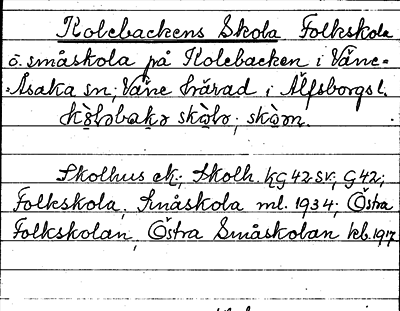 Kolebackens Skola Folkskola
o. småskola på Kolebacken i Väne-
Åsaka sn, Väne härad i Älfsborgs l.
Skolhus ek.; Skolh. kG42SV; G42;
Folkskola, Småskola ml. 1934; Östra
Folkskolan, Östra Småskolan kb. 1917